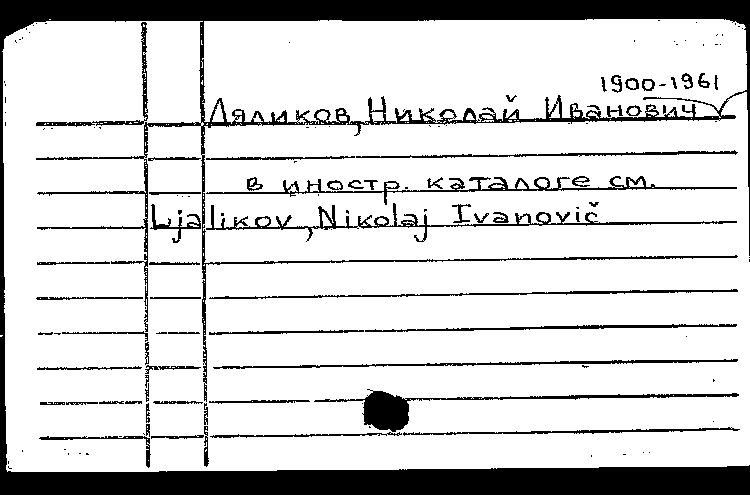 1900-1961
Ляликов, Николай Иванович
в иностр. каталоге см.
Ljalikov, Nikolaj Ivanovič